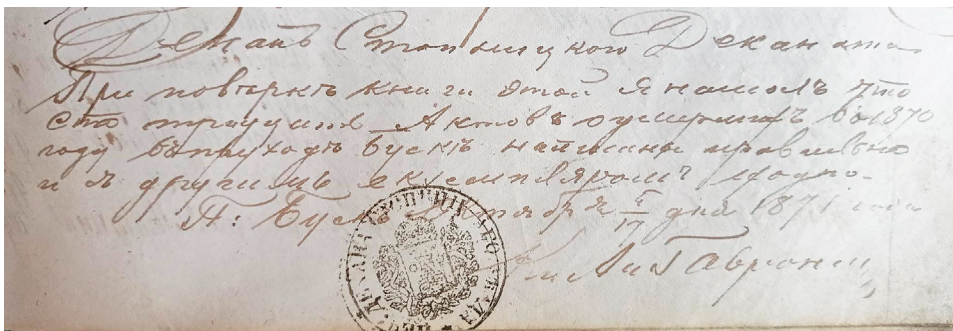 Деканъ Стопницкого Деканата
При повѣркѣ книги этой я нашолъ что
сто тридцать Актовъ умершихъ во 1870
году въ приходѣ Бускѣ написаны правильно
и съ другимъ екземпляромъ сходно.
П: Бускъ Октября 5/17 дня 1871 года